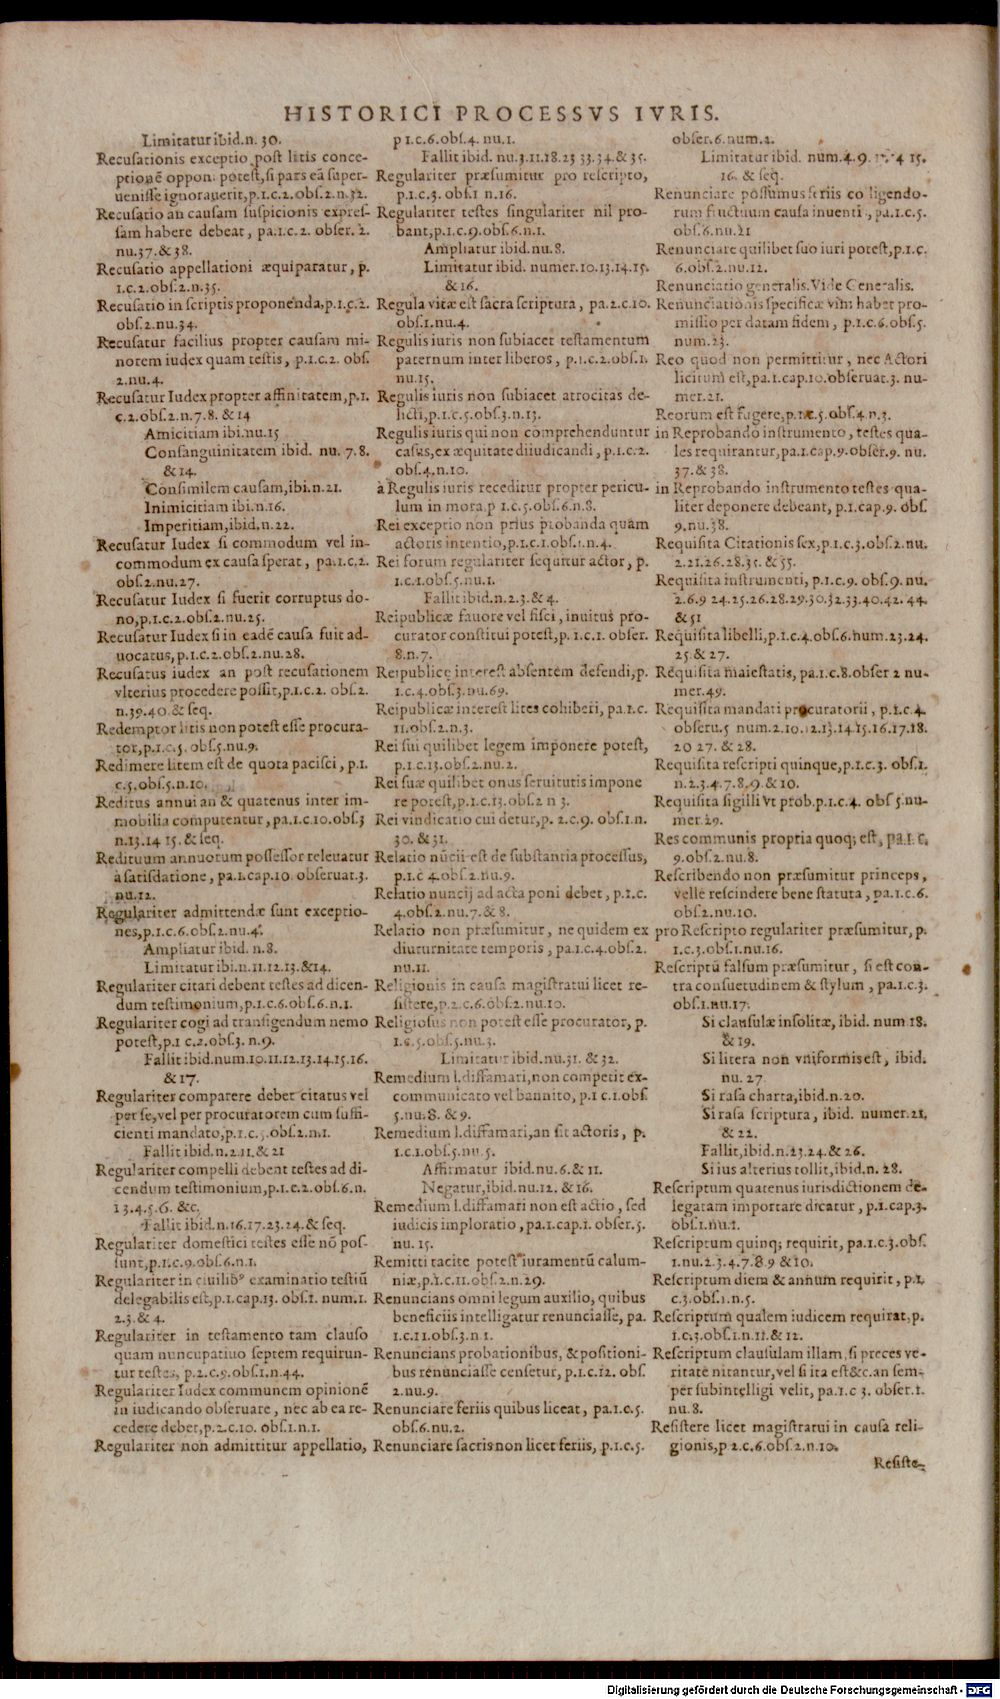 HISTORICI PROCESSVS IVRIS.
Limitatur ibid. n. 30.
Recusationis exceptio post litis conce-
ptionē oppon. potest, si pars eā super-
uenisse ignorauerit, p.1.c.2.obs.2.n.32.
Recusatio an causam suspicionis expres-
sam habere debeat, pa.1.c.2. obser. 2.
nu.37.&38.
Recusatio appellationi æquiparatur, p.
1.c.2.obs.2.n.35.
Recusatio in scriptis proponenda, p.1.c.2.
obs.2.nu.34.
Recusatur facilius propter causam mi-
norem iudex quam testis, p.1.c.2. obs.
2.nu.4.
Recusatur Iudex propter affinitatem, p.1.
c.2.obs.2.n.7.8. &14
Amicitiam ibi.nu.15
Consanguinitatem ibid. nu. 7.8.
&14.
Consimilem causam, ibi.n.21.
Inimicitiam ibi.n.16.
Imperitiam, ibid.n.22.
Recusatur Iudex si commodum vel in-
commodum ex causa sperat, pa.1.c.2.
obs.2.nu.27.
Recusatur Iudex si fuerit corruptus do-
no, p.1.c.2.obs.2.nu.25.
Recusatur Iudex si in eadē causa fuit ad-
uocatus, p.1.c.2.obs.2.nu.28.
Recusatus iudex an post recusationem
vlterius procedere possit, p.1.c.2. obs.2.
n.39.40.& seq.
Redemptor litis non potest esse procura-
tor, p.1.c.5. obs.5.nu.9.
Redimere litem est de quota pacisci, p.1.
c.5.obs.5.n.10.
Reditus annui an & quatenus inter im-
mobilia computentur, pa.1.c.10.obs.3
n.13.14 15. & seq.
Redituum annuorum possessor releuatur
à satisdatione, pa.1.cap.10 obseruat.3.
nu.12.
Regulariter admittendæ sunt exceptio-
nes, p.1.c.6.obs.2.nu.4.
Ampliatur ibid. n.8.
Limitatur ibi.n.11.12.13.&14.
Regulariter citari debent testes ad dicen-
dum testimonium, p.1.c.6.obs.6.n.1.
Regulariter cogi ad transigendum nemo
potest, p.1 c.2.obs.3. n.9.
Fallit ibid.num.10.11.12.13.14.15.16.
&17.
Regulariter comparere debet citatus vel
per se, vel per procuratorem cum suffi-
cienti mandato, p.1.c.5.obs.2.n.1.
Fallit ibid.n.2.11.&21
Regulariter compelli debent testes ad di-
cendum testimonium, p.1.c.2.obs.6.n.
13.4.5.6. &c.
Fallit ibid.n.16.17.23.24.& seq.
Regulariter domestici testes esse nō pos-
sunt, p.1.c.9.obs.6.n.1.
Regulariter in ciuilib9 examinatio testiū
delegabilis est, p.1.cap.13. obs.1. num.1.
2.3.& 4.
Regulariter in testamento tam clauso
quam nuncupatiuo septem requirun-
tur testes, p.2.c.9.obs.1.n.44.
Regulariter Iudex communem opinionē
in iudicando obseruare, nec ab ea re-
cedere debet, p.2.c.10. obs.1.n.1.
Regulariter non admittitur appellatio,
p 1.c.6.obs.4. nu.1.
Fallit ibid. nu.3.11.18.23 33.34.& 35.
Regulariter præsumitur pro rescripto,
p.1.c.3. obs.1 n.16.
Regulariter testes singulariter nil pro-
bant, p.1.c.9.obs.6.n.1.
Ampliatur ibid.nu.8.
Limitatur ibid. numer.10.13.14.15.
&16.
Regula vitæ est sacra scriptura, pa.2.c.10.
obs.1.nu.4.
Regulis iuris non subiacet testamentum
paternum inter liberos, p.1.c.2.obs.1.
nu.15.
Regulis iuris non subiacet atrocitas de-
licti, p.1.c.5.obs.3.n.13.
Regulis iuris qui non comprehenduntur
casus, ex æquitate diiudicandi, p.1.c.2.
obs.4.n.10.
à Regulis iuris receditur propter pericu-
lum in mora, p 1.c.5.obs.6.n.8.
Rei exceptio non prius probanda quàm
actoris intentio, p.1.c.1.obs.1.n.4.
Rei forum regulariter sequitur actor, p.
1.c.1.obs.5.nu.1.
Fallit ibid.n.2.3.& 4.
Reipublicæ fauore vel fisci, inuitus pro-
curator constitui potest, p.1.c.1. obser.
8.n.7.
Reipublicę interest absentem defendi, p.
1.c.4.obs.3.nu.69.
Reipublicæ interest lites cohiberi, pa.1.c.
11.obs.2.n.3.
Rei sui quilibet legem imponere potest,
p.1.c.13.obs.2.nu.2.
Rei suæ quilibet onus seruitutis impone
re potest, p.1.c.13.obs.2 n 3.
Rei vindicatio cui detur, p. 2.c.9. obs.1.n.
30. &31.
Relatio nūcii est de substantia processus,
p.1.c 4.obs.2.nu.9.
Relatio nuncij ad acta poni debet, p.1.c.
4.obs.2.nu.7.&8.
Relatio non præsumitur, ne quidem ex
diuturnitate temporis, pa.1.c.4.obs.2.
nu.11.
Religionis in causa magistratui licet re-
sistere, p.2.c.6.obs.2.nu.10.
Religiosus non potest esse procurator, p.
1.c.5.obs.5.nu.3.
Limitatur ibid.nu.31. & 32.
Remedium l.diffamari, non competit ex-
communicato vel bannito, p.1 c.1.obs.
5.nu.8. & 9.
Remedium l.diffamari, an sit actoris, p.
1.c.1.obs.5.nu.5.
Affirmatur ibid.nu.6.& 11.
Negatur, ibid.nu.12. & 16.
Remedium l.diffamari non est actio, sed
iudicis imploratio, pa.1.cap.1. obser.5.
nu. 15.
Remitti tacite potest iuramentū calum-
niæ, p.1.c.11.obs.2.n.29.
Renuncians omni legum auxilio, quibus
beneficiis intelligatur renunciasse, pa.
1.c.11.obs.3.n 1.
Renuncians probationibus, & positioni-
bus renunciasse censetur, p.1.c.12. obs.
2.nu.9.
Renunciare feriis quibus liceat, pa.1.c.5.
obs.6.nu.2.
Renunciare sacris non licet feriis, p.1.c.5.
obser.6.num.2.
Limitatur ibid. num.4.9. 14 15.
16. & seq.
Renunciare possumus feriis colligendo-
rum fructuum causa inuenti, pa.1.c.5.
obs.6.nu.21
Renunciare quilibet suo iuri potest, p.1.c.
6.obs.2.nu.12.
Renunciatio generalis. Vide Generalis.
Renunciationis specificæ vim habet pro-
missio per datam fidem, p.1.c.6.obs.5.
num.23.
Reo quod non permittitur, nec Actori
licitum est, pa.1.cap.10.obseruat.3. nu-
mer.21.
Reorum est fugere, p.1.c.5.obs.4.n.3.
in Reprobando instrumento, testes qua-
les requirantur, pa.1.cap.9.obser.9. nu.
37.& 38.
in Reprobando instrumento testes qua-
liter deponere debeant, p.1.cap.9. obs.
9.nu.38.
Requisita Citationis sex, p.1.c.3.obs.2.nu.
2.21.26.28.35. & 55.
Requisita instrumenti, p.1.c.9. obs.9. nu.
2.6.9 24.25.26.28.29.30.32.33.40.42. 44.
&51
Requisita libelli, p.1.c.4.obs.6.num.23.24.
25.& 27.
Requisita maiestatis, pa.1.c.8.obser 2 nu-
mer.49.
Requisita mandati procuratorii, p.1.c.4.
obseru.5 num.2.10.12.13.14.15.16.17.18.
20 27. & 28.
Requisita rescripti quinque, p.1.c.3. obs.1.
n.2.3.4.7.8.9.& 10.
Requisita sigilli vt prob.p.1.c.4. obs 5.nu-
mer.29.
Res communis propria quoq; est, pa.1.c.
9.obs.2.nu.8.
Rescribendo non præsumitur princeps,
velle rescindere bene statuta, pa.1.c.6.
obs.2.nu.10.
pro Rescripto regulariter præsumitur, p.
1.c.3.obs.1.nu.16.
Rescriptū falsum præsumitur, si est con-
tra consuetudinem & stylum, pa.1.c.3.
obs.1.nu.17.
Si clausulæ insolitæ, ibid. num 18.
& 19.
Si litera non vniformis est, ibid.
nu. 27
Si rasa charta, ibid.n.20.
Si rasa scriptura, ibid. numer.21.
& 22.
Fallit, ibid.n.23.24.& 26.
Si ius alterius tollit, ibid.n. 28.
Rescriptum quatenus iurisdictionem de-
legatam importare dicatur, p.1.cap.3.
obs.1.nu.1.
Rescriptum quinq; requirit, pa.1.c.3.obs.
1.nu.2.3.4.7.8 9 & 10.
Rescriptum diem & annum requirit, p.1.
c.3.obs.1.n.5.
Rescriptum qualem iudicem requirat, p.
1.c.3.obs.1.n.11.& 12.
Rescriptum clausulam illam, si preces ve-
ritate nitantur, vel si ita est&c.an sem-
per subintelligi velit, pa.1.c 3. obser.1.
nu.8.
Resistere licet magistratui in causa reli-
gionis, p 2.c.6.obs.2.n.10.
Resiste-
Digitalisierung gefördert durch die Deutsche Forschungsgemeinschaft - DFG